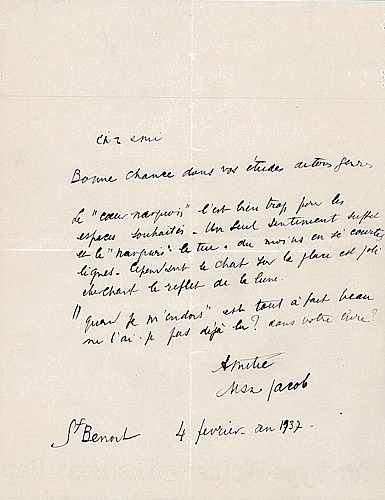 cher ami
Bonne chance dans vos études de tous genres
Le "cœur " c'est bien trop pour les
espaces souhaités. Un seul sentiment suffit
et le " le tue. du moins en si courtes
lignes. Cependant le chat sur la glace est joli
cherchant le reflet de la lune.
"Quand je m'endors" est tout à fait beau
ne l'ai-je pas déjà lu? dans votre livre?
Amitié
Max Jacob
St Benoit 4 fevrier - an 1937 -